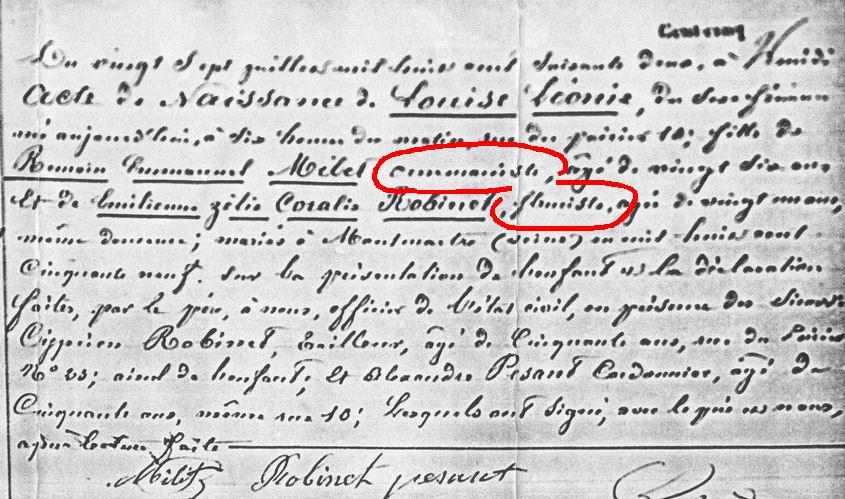 Du vingt Sept juillet mil huit cent Soixante deux, à Midi
Acte de Naissance de Louise Léonie, du Sexe féminin
née aujourd'hui, à six heures du matin, rue du poirier 10; fille de
Romain Emmanuel Milet âgé de vingt six ans
Et de Emilienne zélie Coralie Robinet, fleuriste, agée de vingt un ans,
même demeure; mariés à Montmartre (seine) en mil huit cent
Cinquante neuf. Sur la présentation de l'enfant et la déclaration
faites, par le père, à nous, officier de l'état civil, en présence des Sieurs
Robinet, Tailleur, âgé de Cinquante ans, rue du Poirier
N° 23; aieul de l'enfant; Et Alexandre Pesant Cordonnier, âgé de
Cinquante ans, même rue 10; Lesquels ont signé, avec le père et nous,
après lecture faite
Milet Robinet pesant